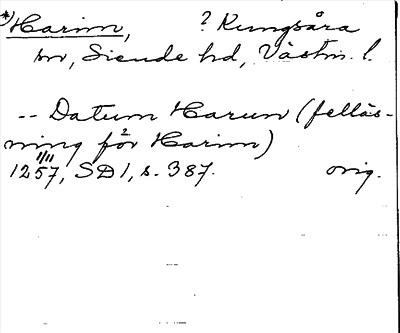 *Harim, ? Kungsåra
sn, Siende hd, Västm. l.
-- Datum Harun (felläs-
ning för ? Harim)
1/11
1257, SD 1, s. 387. orig.